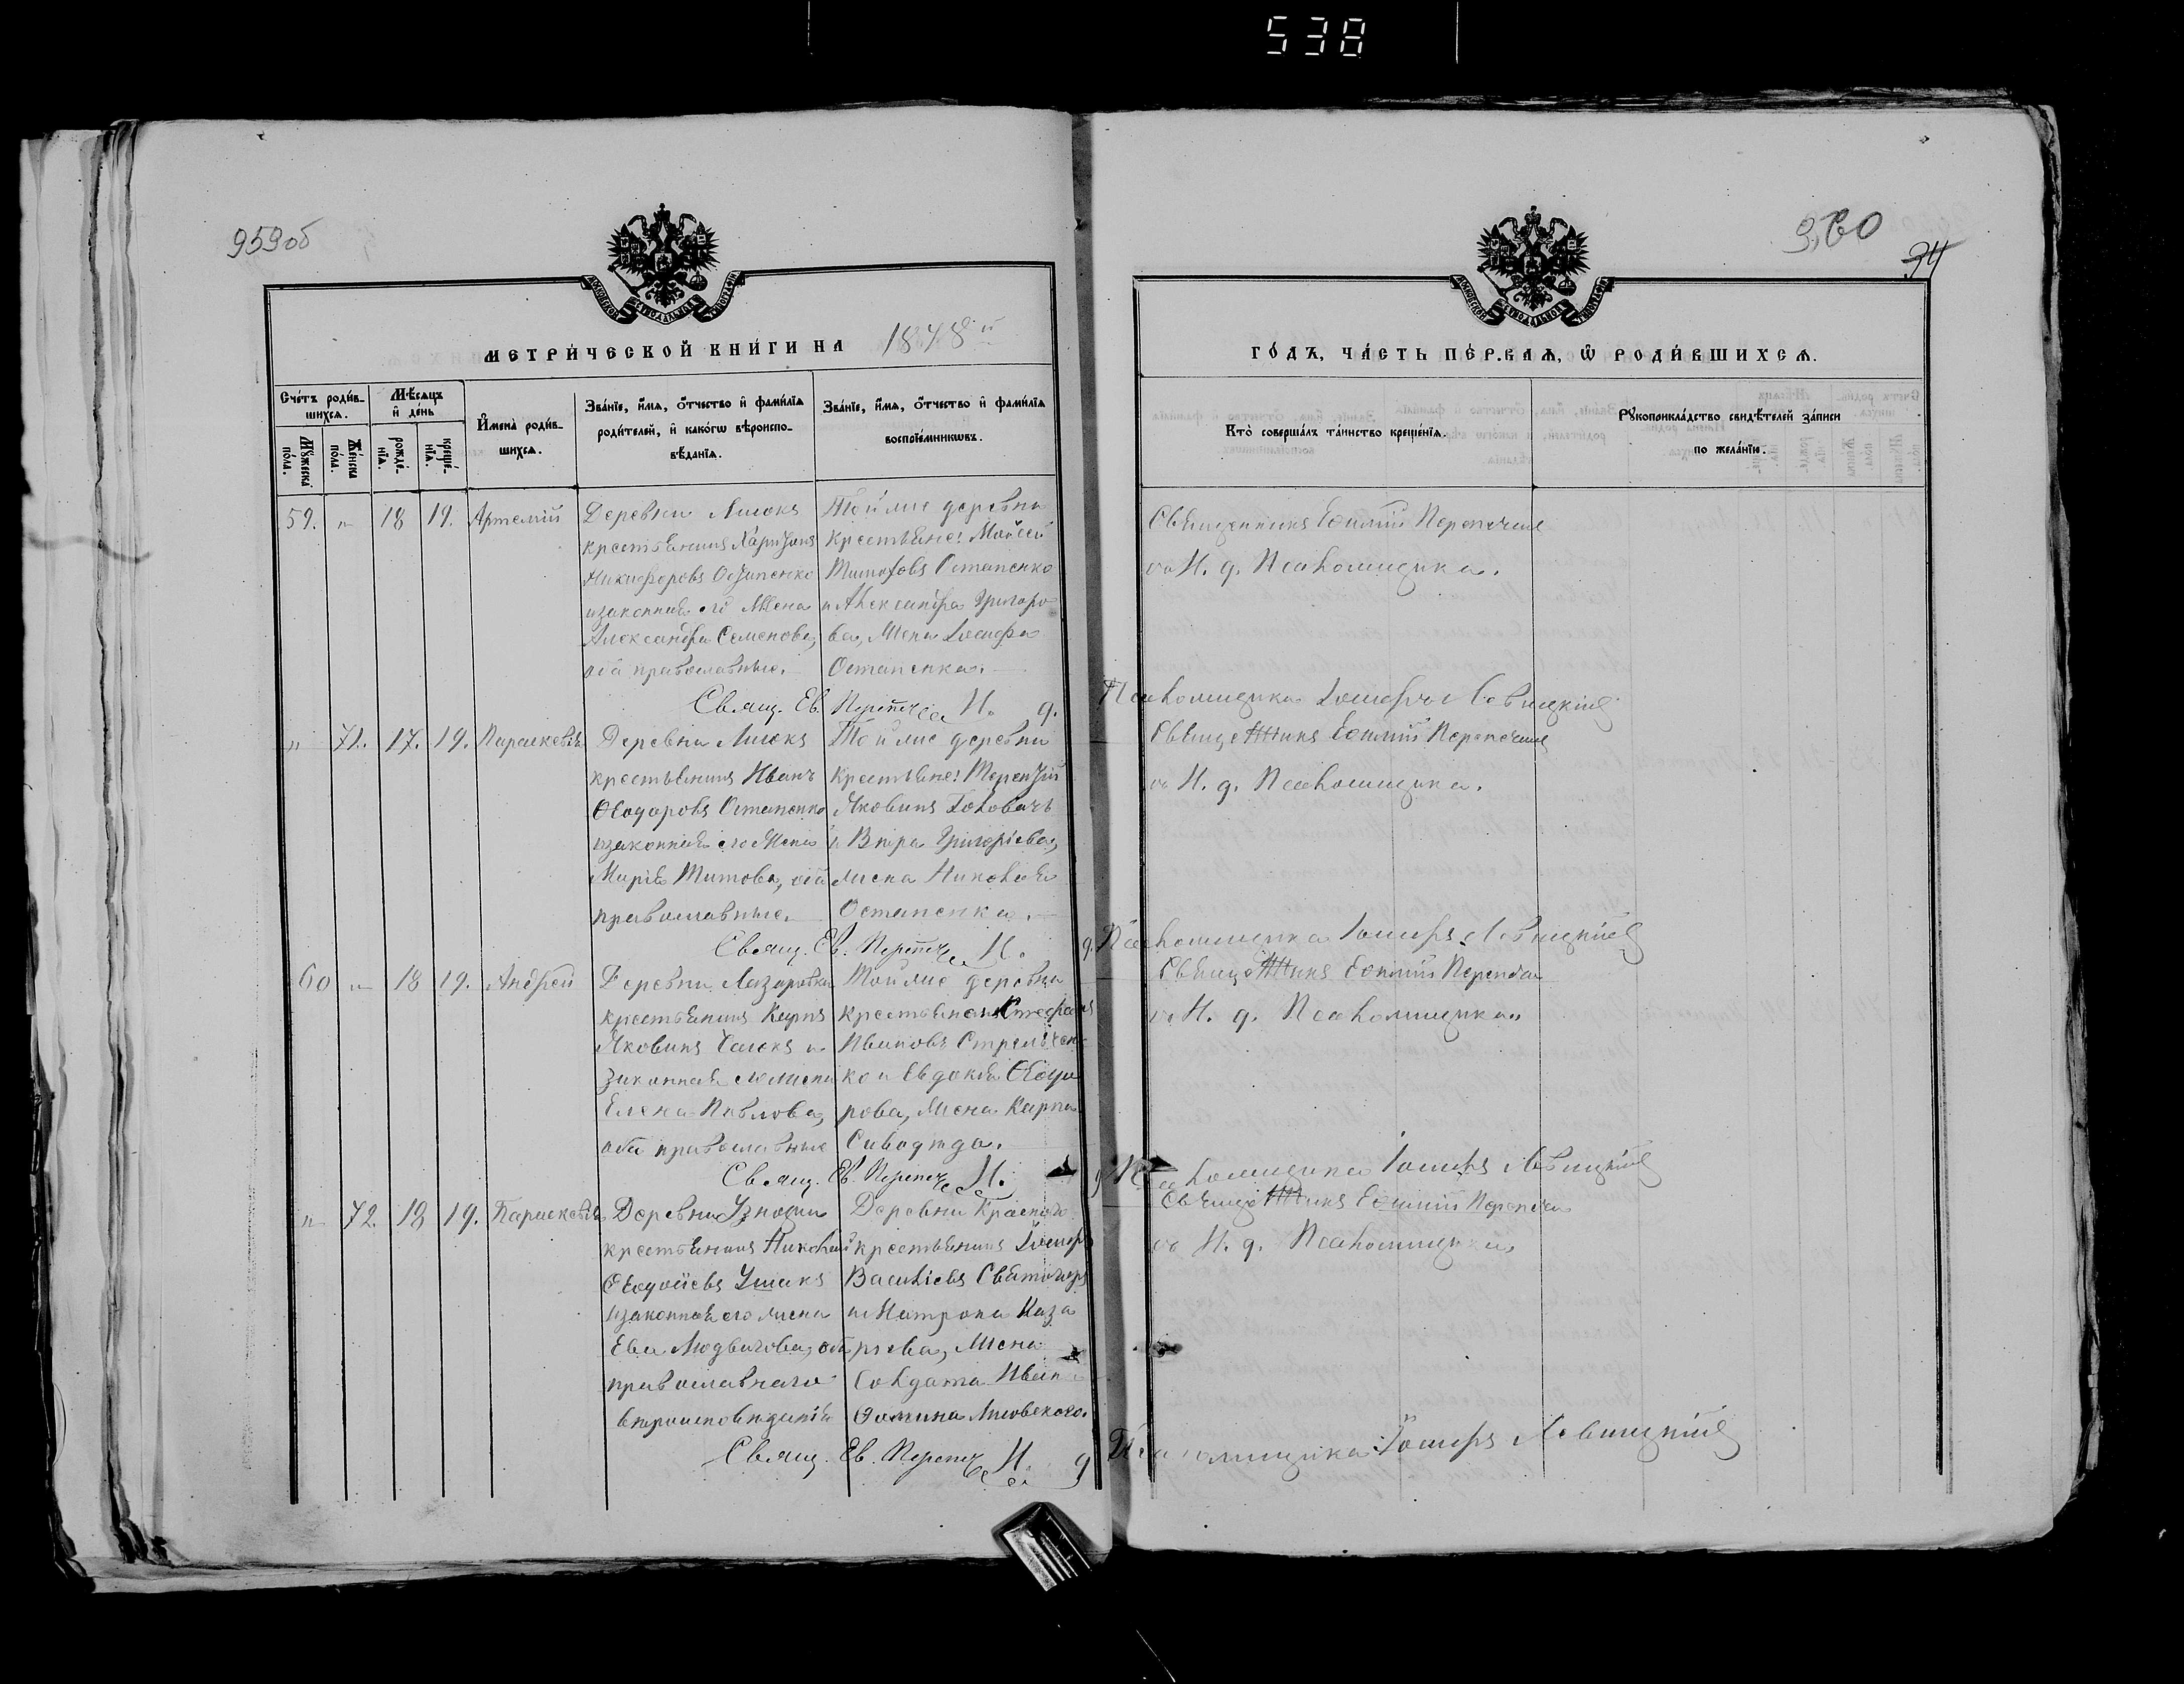 538
959об
960
94
МЕТРИ́ЧЕСКОЙ КНИ́ГИ НА 1878й
ГО́ДЪ, ЧА́СТЬ ПЕ́РВАЯ, Ѿ РОДИ́ВШИХСЯ.
Сче́тъ роди́в-
шихся.
Мѹ́жеска по́ла.
Же́нска по́ла.
Мѣ́сяцъ
и де́нь
рожде́-
нія.
креще́-
нія.
Имена̀ роди́в-
шихся.
Зва́ніе, и́мя, о́тчество и фами́лія
роди́телей, и како́гѡ вѣроиспо-
вѣ́данія.
Зва́ніе, и́мя, о́тчество и фами́лія
воспріе́мникѡвъ.
Кто̀ соверша́лъ та́инство креще́нія.
Рѹкоприкла́дство свидѣ́телей за́писи
по жела́нію.
59. " 18 19. Артемій
Деревни
крестьянинъ Харитонъ
Никифоровъ Остапенко
и законная его жена
Александра Семенова,
оба православные.
Той же деревни
крестьяне: Мойсей
Титовъ Остапенко
и Александра Григоро
ва, жена Іосифа
Остапенка.
Священникъ Евѳимій
съ И. д. Псаломщика.
Свящ. Ев. И. д. Псаломщика Іосифъ Левицкій
" 71. 17. 19. Параскевія
Деревни
крестьянинъ Иванъ
Ѳеодоровъ Остапенко
и законная его жена
Марія Титова, оба
православные.
Той же деревни
крестьяне: Терентій
Яковинъ Головачъ
и Вѣра Григоріева,
жена Николая
Остапенка.
Священникъ Евѳимій
съ И. д. Псаломщика.
Свящ. Ев. И. д. Псаломщика Іосифъ Левицкій
60 " 18 19. Андрей
Деревни Лазаровки
крестьянинъ Карпъ
Яковинъ и
законная его жена
Елена Павлова,
оба православные
Той же деревни
крестьяне: Стефанъ
Ивановъ Стрельчен
ко и Евдокія Ѳеодо
рова, жена Карпа
Священникъ Евѳимій
съ И. д. Псаломщика
Свящ. Ев. И. д. Псаломщика Іосифъ Левицкій
" 72. 18 19. Параскевія
Деревни
крестьянинъ Николай
Ѳеодосіевъ Ушакъ
и законная его жена
Ева Людвигова, оба
православнаго
вѣроисповѣданія
Деревни Краснаго
крестьянинъ Іосифъ
Василіевъ Святогоръ
и Матрона Каза
рьева, жена
Солдата Ивана
Ѳомина Лисовского.
Священникъ Евѳимій
съ И. д. Псаломщика
Свящ. Ев. И. д. Псаломщика Іосифъ Левицкій